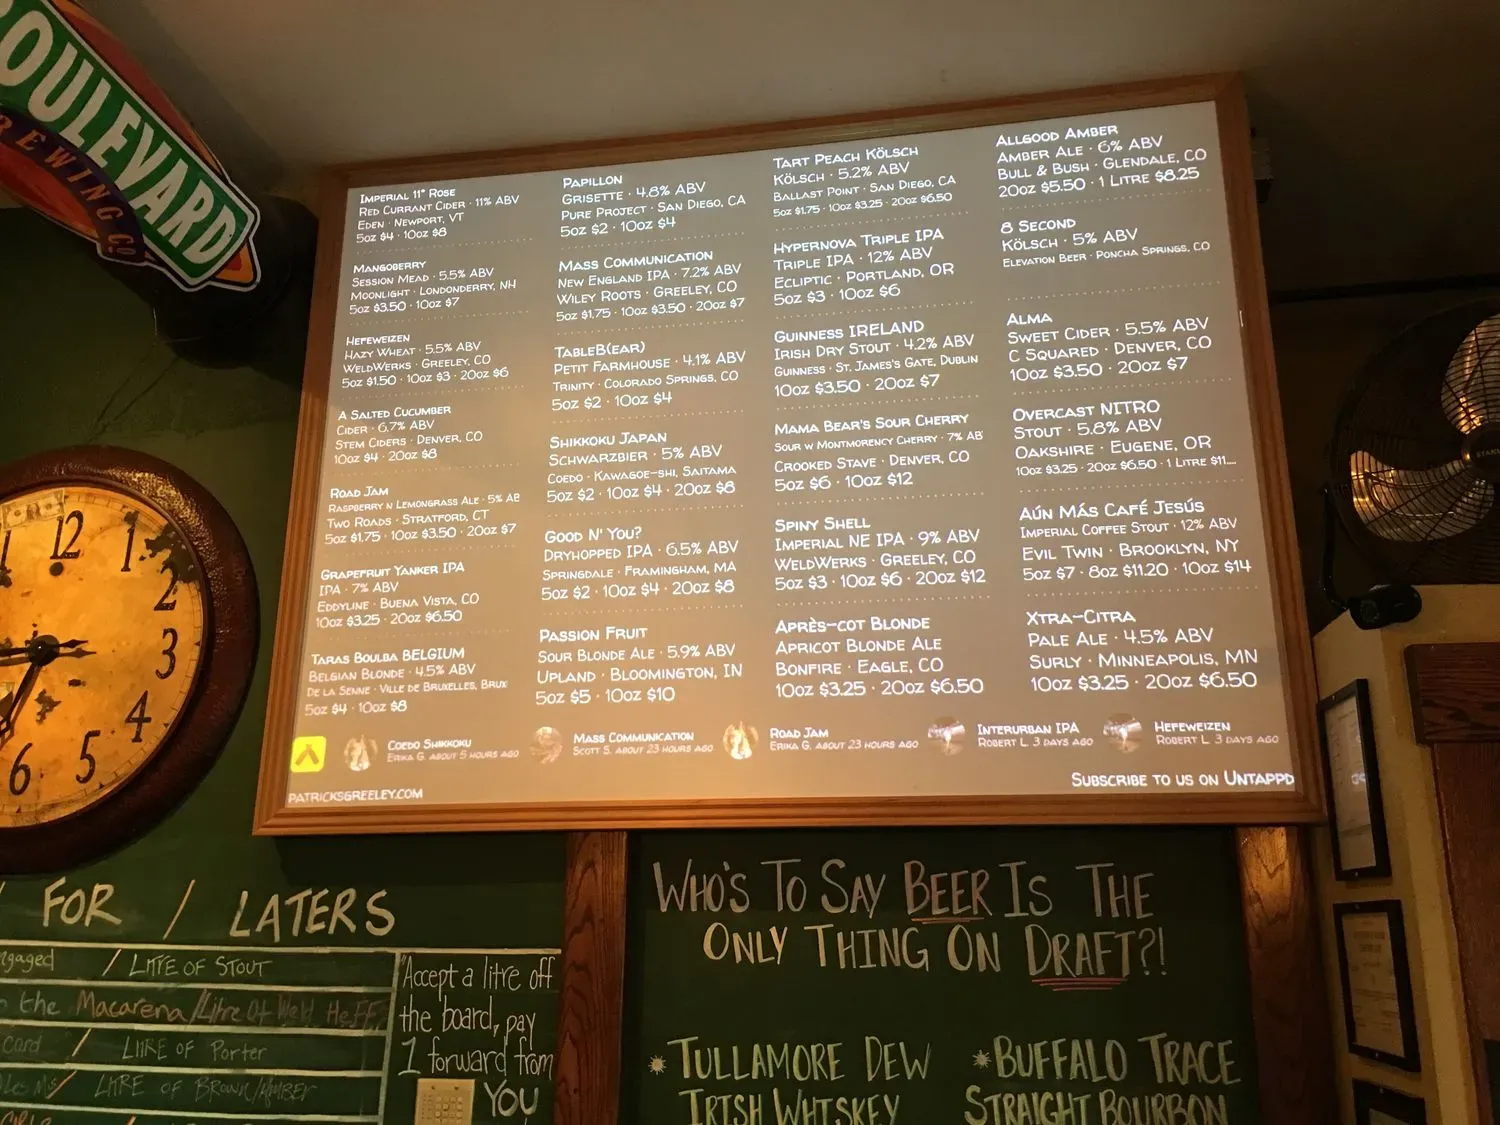 OULEVARD
REWING CO
IMPERIAL 11° ROSE
RED CURRANT CIDER · 11% ABV
EDEN · NEWPORT, VT
5OZ $4 · 10OZ $8
MANGOBERRY
SESSION MEAD · 5.5% ABV
MOONLIGHT · LONDONDERRY, NH
5OZ $3.50 · 10OZ $7
HEFEWEIZEN
HAZY WHEAT · 5.5% ABV
WELDWERKS · GREELEY, CO
5OZ $1.50 · 10OZ $3 · 20OZ $6
A SALTED CUCUMBER
CIDER · 6.7% ABV
STEM CIDERS · DENVER, CO
10OZ $4 · 20OZ $8
ROAD JAM
RASPBERRY N LEMONGRASS ALE · 5% AB
TWO ROADS · STRATFORD, CT
5OZ $1.75 · 10OZ $3.50 · 20OZ $7
GRAPEFRUIT YANKER IPA
IPA · 7% ABV
EDDYLINE · BUENA VISTA, CO
10OZ $3.25 · 20OZ $6.50
TARAS BOULBA BELGIUM
BELGIAN BLONDE · 4.5% ABV
DE LA SENNE · VILLE DE BRUXELLES, BRUX
5OZ $4 · 10OZ $8
PAPILLON
GRISETTE · 4.8% ABV
PURE PROJECT · SAN DIEGO, CA
5OZ $2 · 10OZ $4
MASS COMMUNICATION
NEW ENGLAND IPA · 7.2% ABV
WILEY ROOTS · GREELEY, CO
5OZ $1.75 · 10OZ $3.50 · 20OZ $7
TABLEB(EAR)
PETIT FARMHOUSE · 4.1% ABV
TRINITY · COLORADO SPRINGS, CO
5OZ $2 · 10OZ $4
SHIKKOKU JAPAN
SCHWARZBIER · 5% ABV
COEDO · KAWAGOE-SHI, SAITAMA
5OZ $2 · 10OZ $4 · 20OZ $8
GOOD N' YOU?
DRYHOPPED IPA · 6.5% ABV
SPRINGDALE · FRAMINGHAM, MA
5OZ $2 · 10OZ $4 · 20OZ $8
PASSION FRUIT
SOUR BLONDE ALE · 5.9% ABV
UPLAND · BLOOMINGTON, IN
5OZ $5 · 10OZ $10
TART PEACH KÖLSCH
KÖLSCH · 5.2% ABV
BALLAST POINT · SAN DIEGO, CA
5OZ $1.75 · 10OZ $3.25 · 20OZ $6.50
HYPERNOVA TRIPLE IPA
TRIPLE IPA · 12% ABV
ECLIPTIC · PORTLAND, OR
5OZ $3 · 10OZ $6
GUINNESS IRELAND
IRISH DRY STOUT · 4.2% ABV
GUINNESS · ST. JAMES'S GATE, DUBLIN
10OZ $3.50 · 20OZ $7
MAMA BEAR'S SOUR CHERRY
SOUR W MONTMORENCY CHERRY · 7% AB
CROOKED STAVE · DENVER, CO
5OZ $6 · 10OZ $12
SPINY SHELL
IMPERIAL NE IPA · 9% ABV
WELDWERKS · GREELEY, CO
5OZ $3 · 10OZ $6 · 20OZ $12
APRÈS-COT BLONDE
APRICOT BLONDE ALE
BONFIRE · EAGLE, CO
10OZ $3.25 · 20OZ $6.50
ALLGOOD AMBER
AMBER ALE · 6% ABV
BULL & BUSH · GLENDALE, CO
20OZ $5.50 · 1 LITRE $8.25
8 SECOND
KÖLSCH · 5% ABV
ELEVATION BEER · PONCHA SPRINGS, CO
ALMA
SWEET CIDER · 5.5% ABV
C SQUARED · DENVER, CO
10OZ $3.50 · 20OZ $7
OVERCAST NITRO
STOUT · 5.8% ABV
OAKSHIRE · EUGENE, OR
10OZ $3.25 · 20OZ $6.50 · 1 LITRE $11....
AÚN MÁS CAFÉ JESÚS
IMPERIAL COFFEE STOUT · 12% ABV
EVIL TWIN · BROOKLYN, NY
5OZ $7 · 8OZ $11.20 · 10OZ $14
XTRA-CITRA
PALE ALE · 4.5% ABV
SURLY · MINNEAPOLIS, MN
10OZ $3.25 · 20OZ $6.50
COEDO SHIKKOKU
ERIKA G. ABOUT 5 HOURS AGO
MASS COMMUNICATION
SCOTT S. ABOUT 23 HOURS AGO
ROAD JAM
ERIKA G. ABOUT 23 HOURS AGO
INTERURBAN IPA
ROBERT L. 3 DAYS AGO
HEFEWEIZEN
ROBERT L. 3 DAYS AGO
PATRICKSGREELEY.COM
SUBSCRIBE TO US ON UNTAPPD
12 1 2 3 4 5 6
FOR / LATERS
ngaged / LITRE OF STOUT
the Macarena / Litre Of Weld Heff
Card / LITRE OF Porter
/ LITRE OF BROWN/AMBER
"Accept a litre off
the board, pay
1 forward from
YOU
WHO'S TO SAY BEER IS THE
ONLY THING ON DRAFT?!
* TULLAMORE DEW
IRISH WHISKEY
* BUFFALO TRACE
STRAIGHT BOURBON